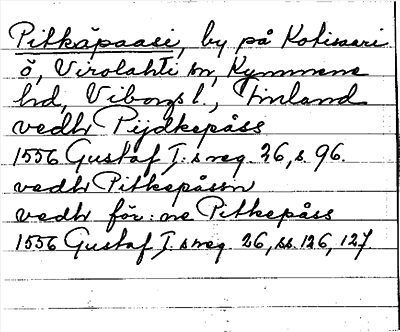 Pitkäpaasi, by på Kotisaari
ö, Virolahti sn, Kymmene
hd, Viborgs l., Finland
vedhr Pijdkepåss
1556 Gustaf I:s reg. 26, s. 96.
vedhr Pitkepåssn
vedhr för:ne Pitkepåss
1556 Gustaf I:s reg. 26, ss. 126, 127.